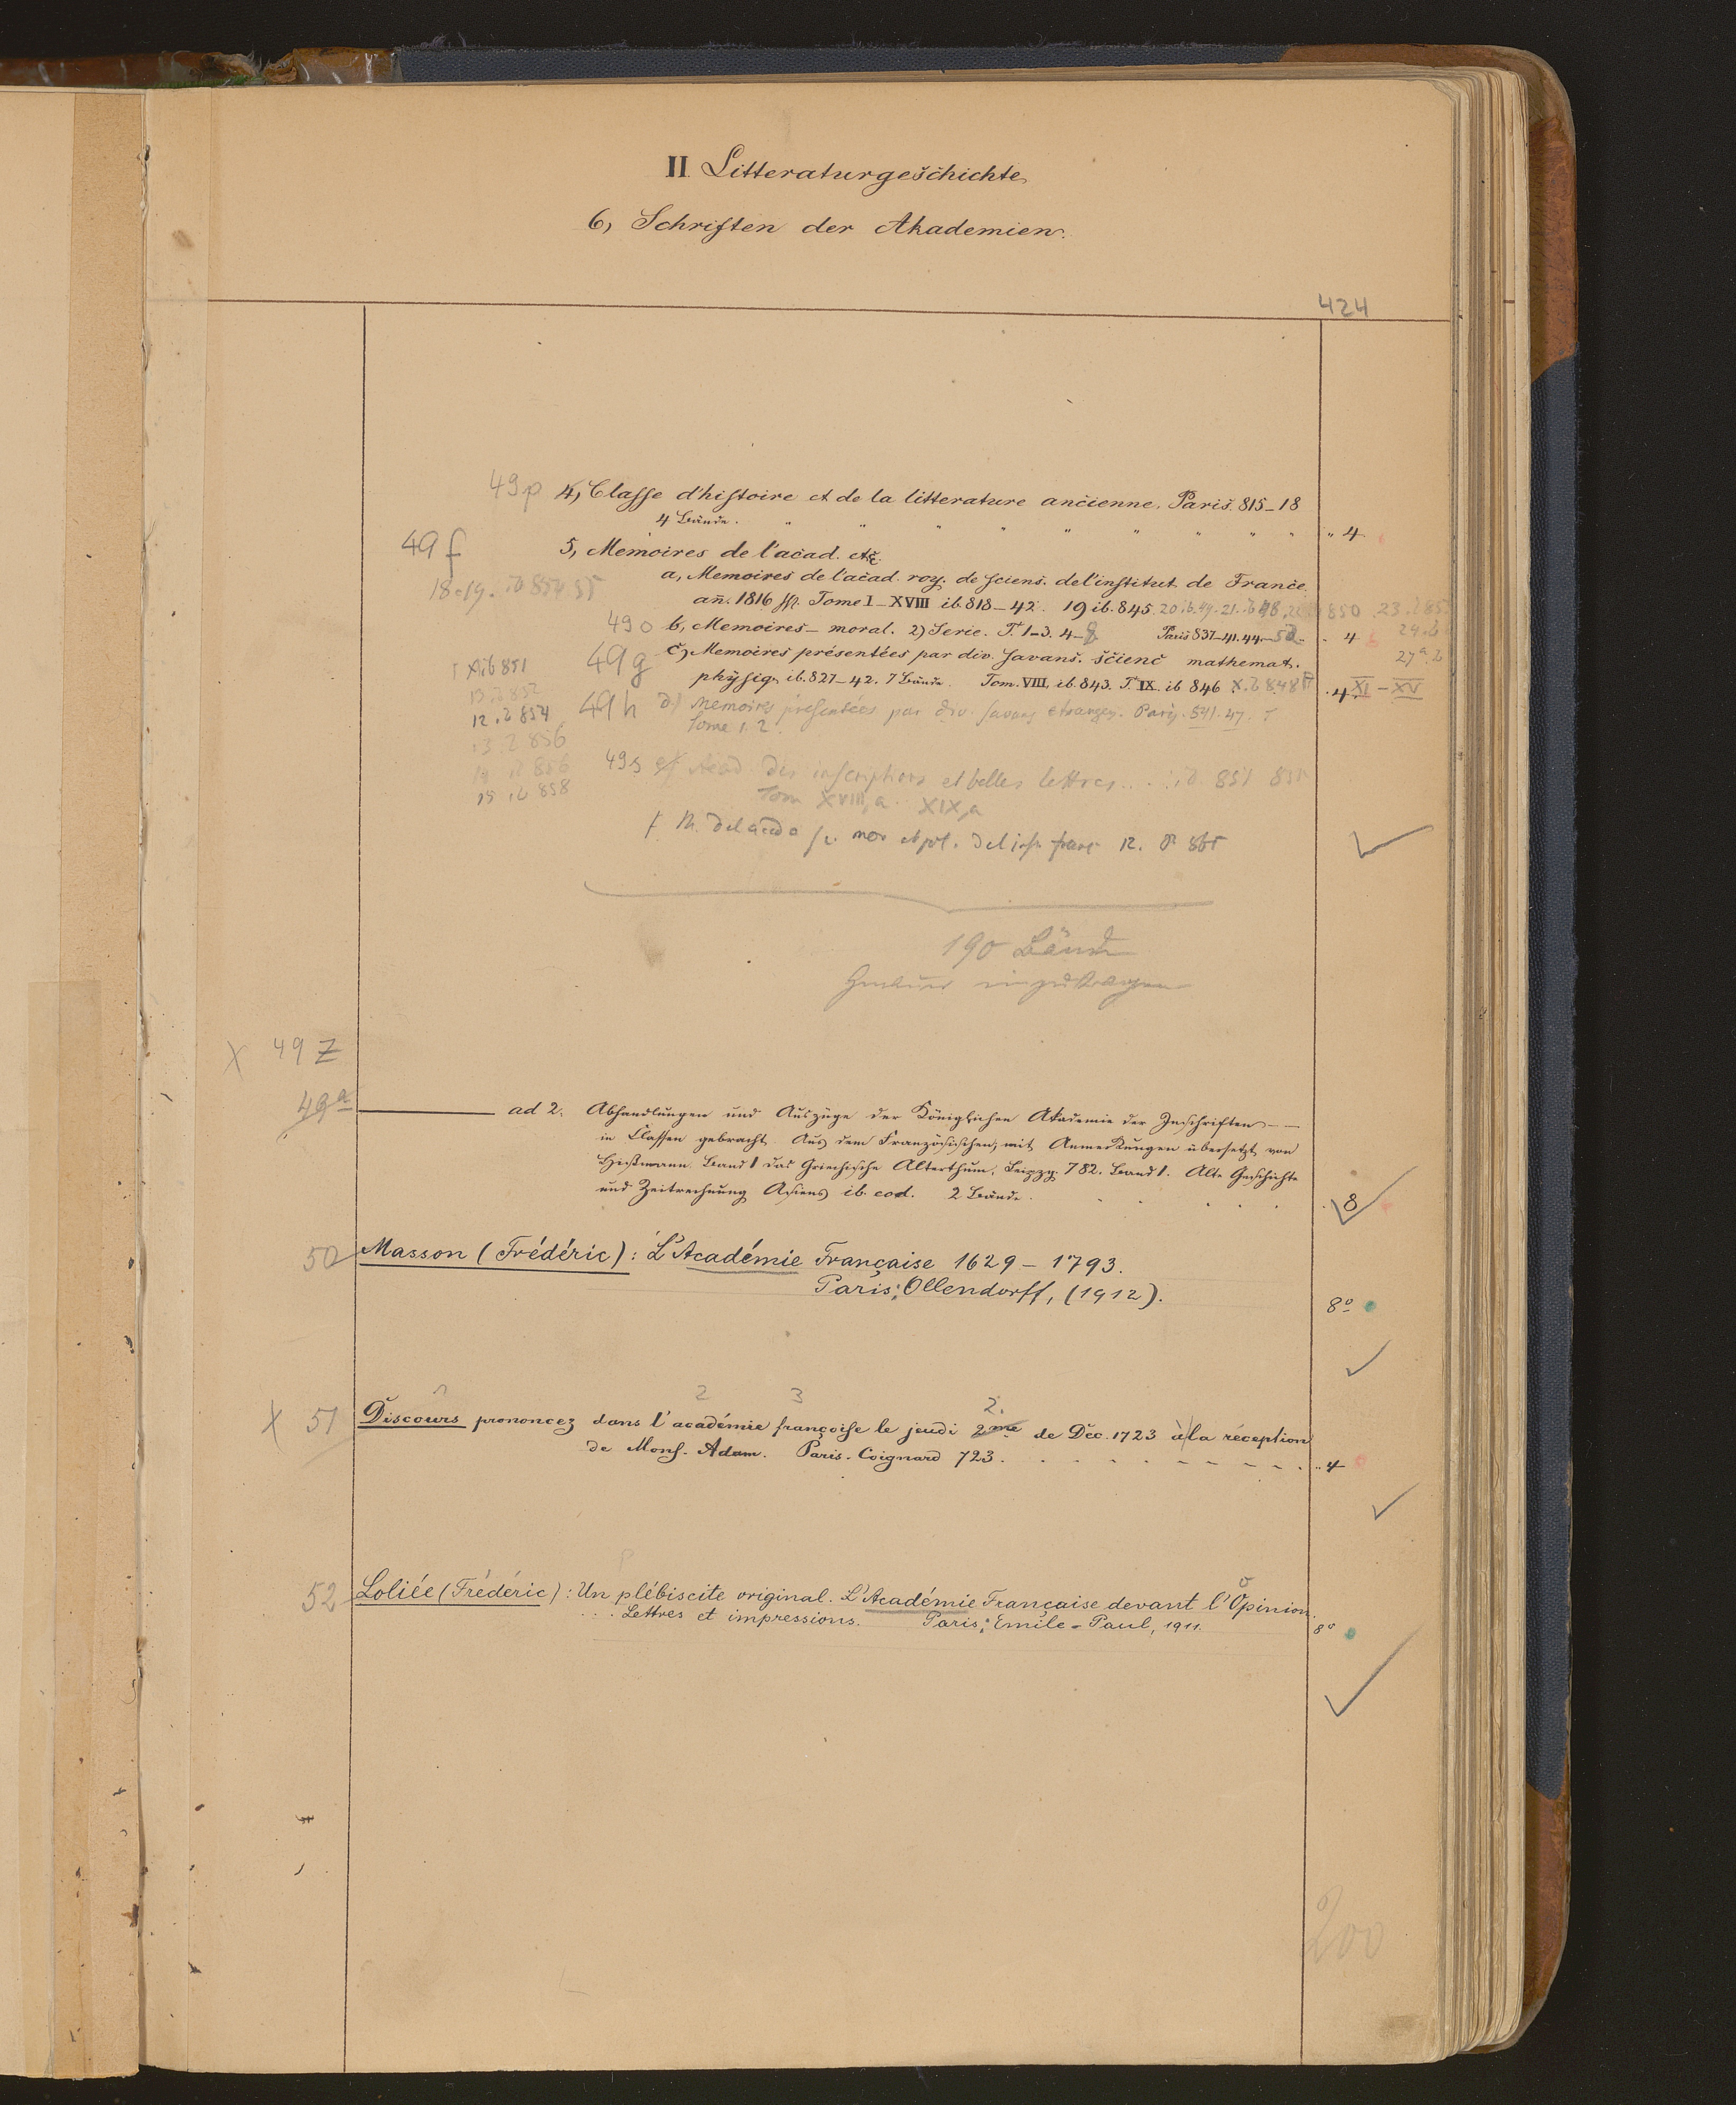 II. Litteraturgeschichte
6, Schriften der Akademien.
424
49p 4, Classe d'histoire et de la litterature ancienne. Paris. 815_18
4 Bände. " " " " " " " " " 4.
49f 5, Memoires de l'acad. etc.
a, Memoires de l'acad. roy. de sciens. de l'institut de France.
18.19. ib 854 55
añ. 1816 ff. Tome I_XVIII ib. 818_42. 19 ib. 845. 20 ib. 49. 21. ib 48. 850 . 23.
49o b, Memoires_ moral. 2) Serie. T. 1_3. 4_8 Paris 837_41. 44_52_ . 4 24. ib
49g c, Memoires présentées par div. savans. scienc mathemat. 27a. ib
XI ib 851
physiq. ib. 827_42. 7 Bände. Tom. VIII. ib. 843. T. IX. ib 846 X. ib 848 . 4 XI - XV
13. ib 852
49h d) Memoires présentées par div. savans etrangers. Paris. 841. 47.
12. ib 854
Tome 1. 2.
13 ib 856
49s Acad. des inscriptions et belles lettres... ib. 851
14 ib 856
Tom XVIII,a. XIX,a
15 ib 858
190 Bände
Genauer einzutragen
X 49 Z
49a ad 2. Abhandlungen und Auszüge der Königlichen Akademie der Inschriften _ _
in Classen gebracht. Aus dem Französischen, mit Anmerkungen übersetzt von
Hißmann. Band 1 das Griechische Alterthum. Leipzg. 782. Band 1. Alte Geschichte
und Zeitrechnung Asiens ib. eod. 2 Bände. 8
50 Masson (Frédéric): L'Académie Française 1629 – 1793.
Paris: Ollendorff, (1912).
8º
2 3 2.
X 51 Discours prononcez dans l'académie françoise le jeudi 2me de Déc. 1723 à la réception
de Mons. Adam. Paris. Coignard 723. 4
52 Loliée (Frédéric): Un plébiscite original. L'Académie Française devant l'Opinion.
... Lettres et impressions. Paris: Emile-Paul, 1911. 8º
200